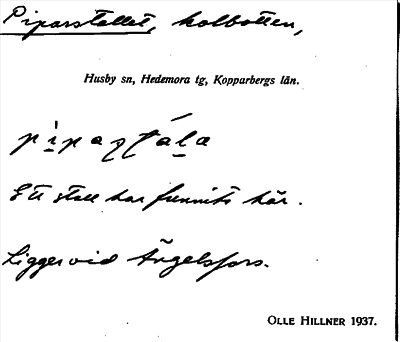 Piparstallet, kolbotten,
Husby sn, Hedemora tg, Kopparbergs län.
Ett stall har funnits här.
Ligger vid Ängelsfors.
OLLE HILLNER 1937.